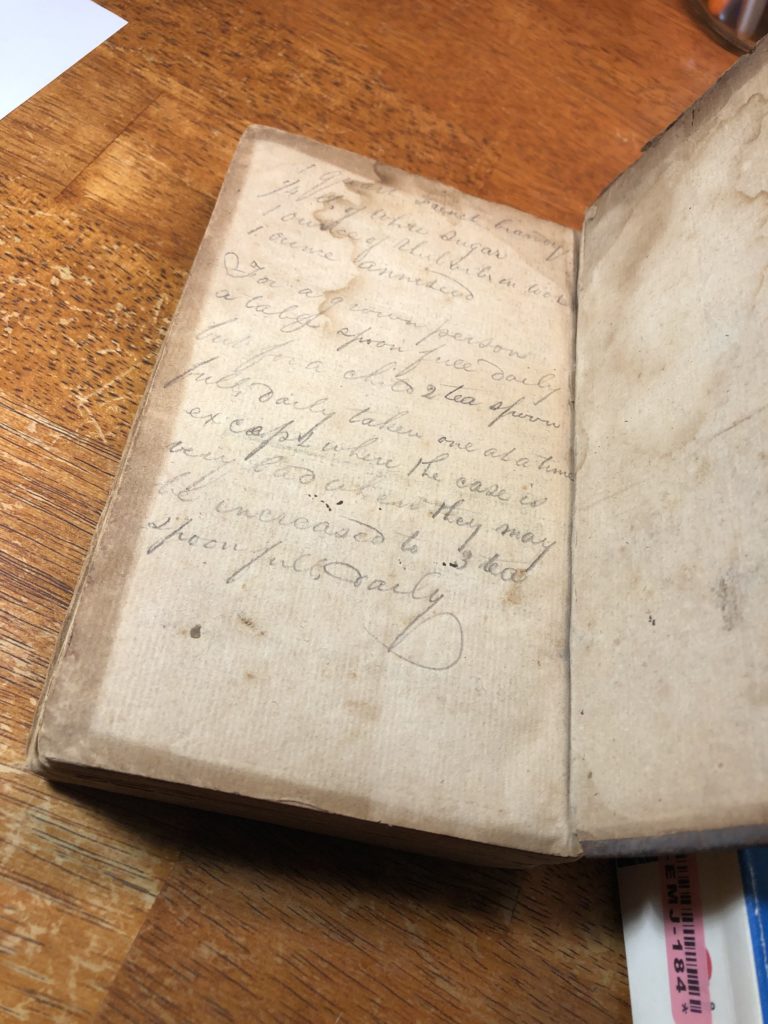 French brandy
of white sugar
1 ounce of Rhubarb in
1 ounce anneseed
For a grown person
a table spoon full daily
but for a child 2 tea spoon
full, daily taken one at a time
except where the case is
very bad when they may
be increased to 3 tea
spoon full, daily
EMJ-184*